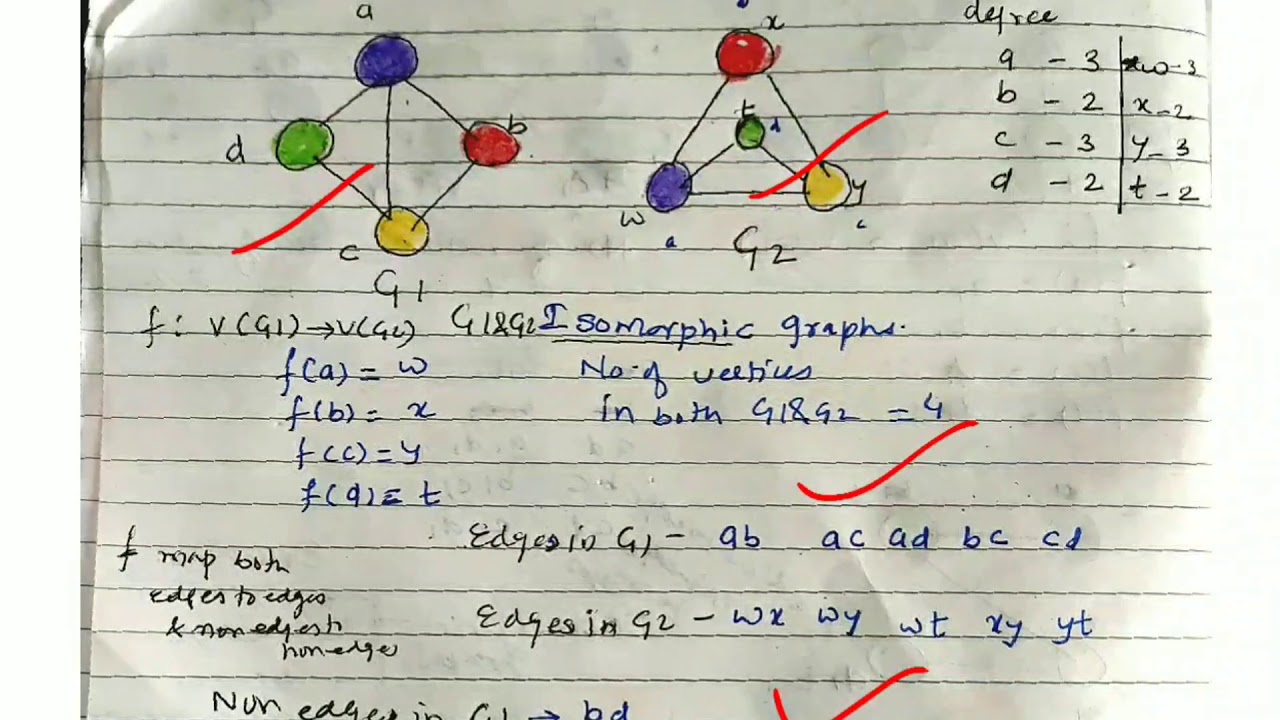 a
x
degree
a - 3 w-3
b - 2 x-2
c - 3 y-3
d - 2 t-2
d
b
t
d
w
a
y
c
c
G1
G2
f: V(G1)→V(G2) G1&G2 Isomorphic graphs.
f(a) = w No. of vertices
f(b) = x in both G1&G2 = 4
f(c) = y
f(d) = t
Edges in G1 - ab ac ad bc cd
f map both
edges to edges
& non edges to
non-edges
Edges in G2 - wx wy wt xy yt
Non edges in G1 → bd